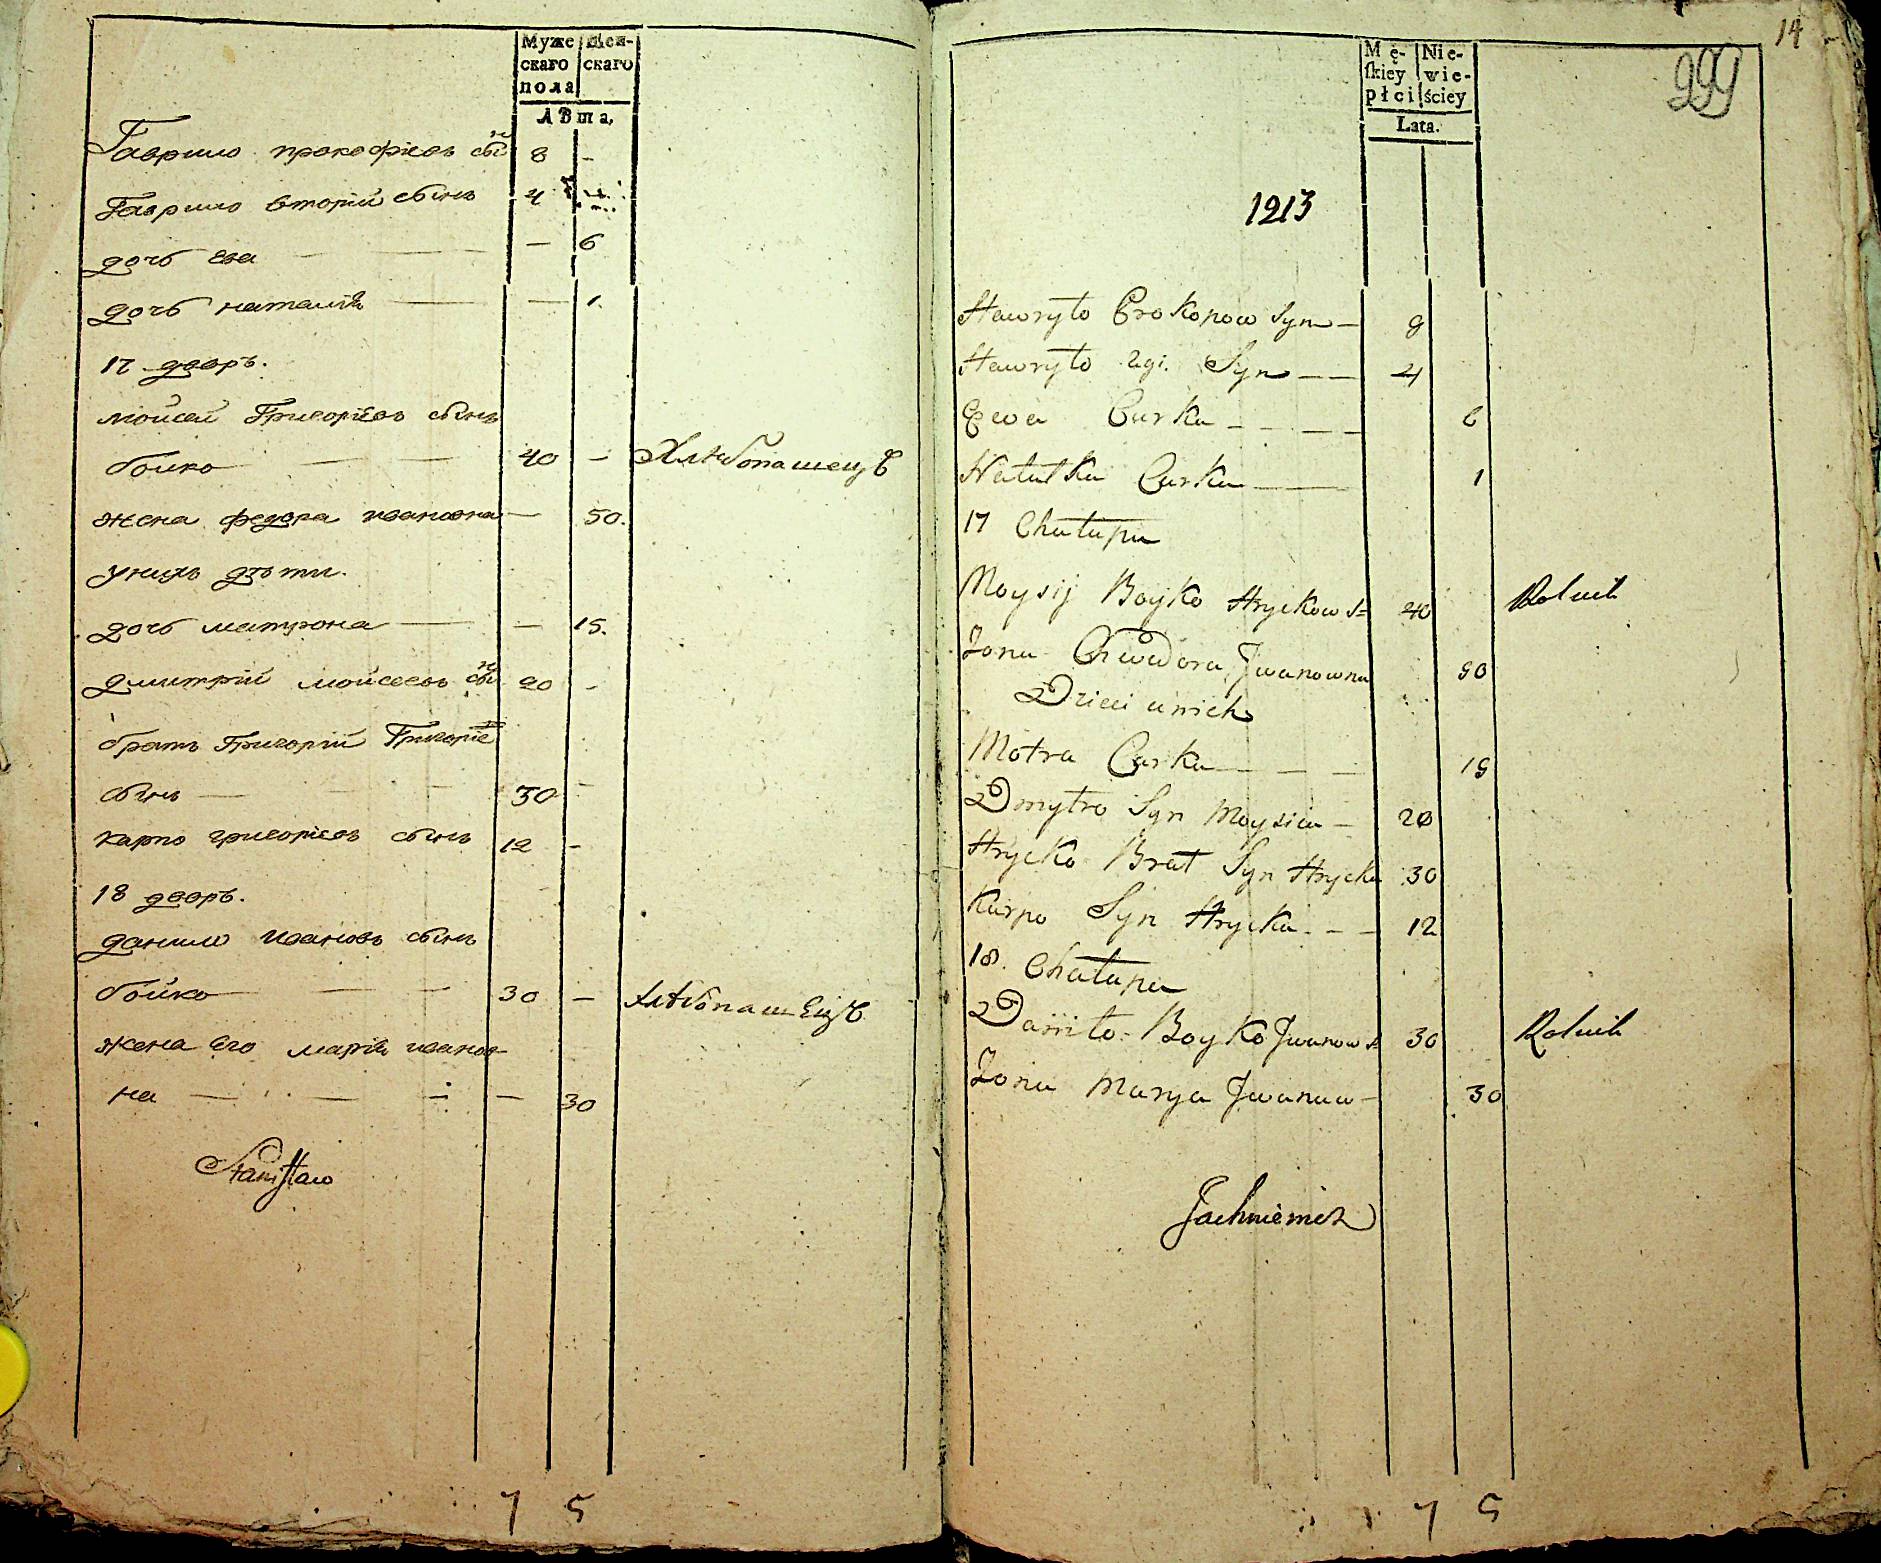 Муже Жен-
скаго скаго
пола
лѣта,
Гаврило прокофіевъ сынъ 8 -
Гаврило вторій сынъ 4
дочь Ева — 6
дочь наталія — 1.
17 дворъ.
мойсей Григоріевъ сынъ
бойко 40 — Хлѣбопашецъ
жена федора ивановна — 50.
унихъ дѣти.
дочь матрона — 15.
дмитрій мойсеевъ сынъ 20 -
братъ Григорій Григоріе
сынъ — 30 -
карпо григоріевъ сынъ 12 -
18 дворъ.
данило ивановъ сынъ
бойко 30 — хлѣбопашецъ
жена Его марія иванов-
на — 30
Stanisław
7 5
14
299
Mę- Nie-
skiey wie-
płci ściey
Lata.
1213
Hawryło Prokopow Syn — 8
Hawryło 2gi. Syn — 4
Ewa Curka — 6
Natałka Curka — 1
17 Chałupa
Moysij Boyko Hryckow S= 40 Rolnik
Żona Chwedora Jwanowna 50
Dzieci unich
Motra Curka — 15
Dmytro Syn Moysia — 20
Hrycko Brat Syn Hrycka 30
Karpo Syn Hrycka — 12
18. Chałupa
Daniło Boyko Jwanow S 30 Rolnik
Żona Marya Jwanow — 30
Jachniewicz
7 5